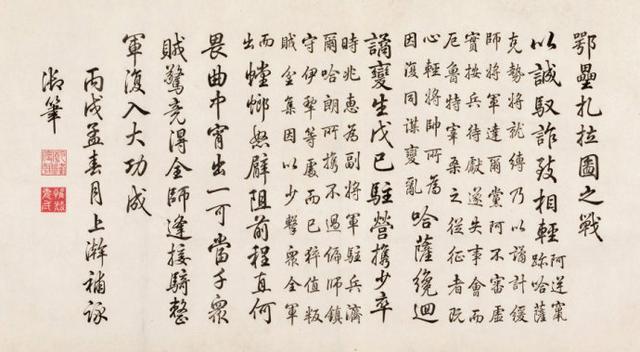 鄂壘扎拉圖之戰
以誠馭詐致相輕阿逆竄
跡哈薩
克勢將就縛乃以譎計緩
師將軍達爾黨阿不審虛
實按兵待獻遂失事會而
厄魯特宰桑之從征者既
心輕將帥所為
因復同謀變亂哈薩繞迴
譎變生戊己駐營攜少卒
時兆惠為副將軍駐兵濟
爾哈朗所攜不過偏師鎮
守伊犂等處而已猝值叛
賊坌集因以少擊衆全軍
而
出螳蜋怒臂阻前程直何
畏曲巾宵出一可當千衆
賊驚竟得全師逢接騎整
軍復入大功成
丙戌孟春月上澣補詠
御筆